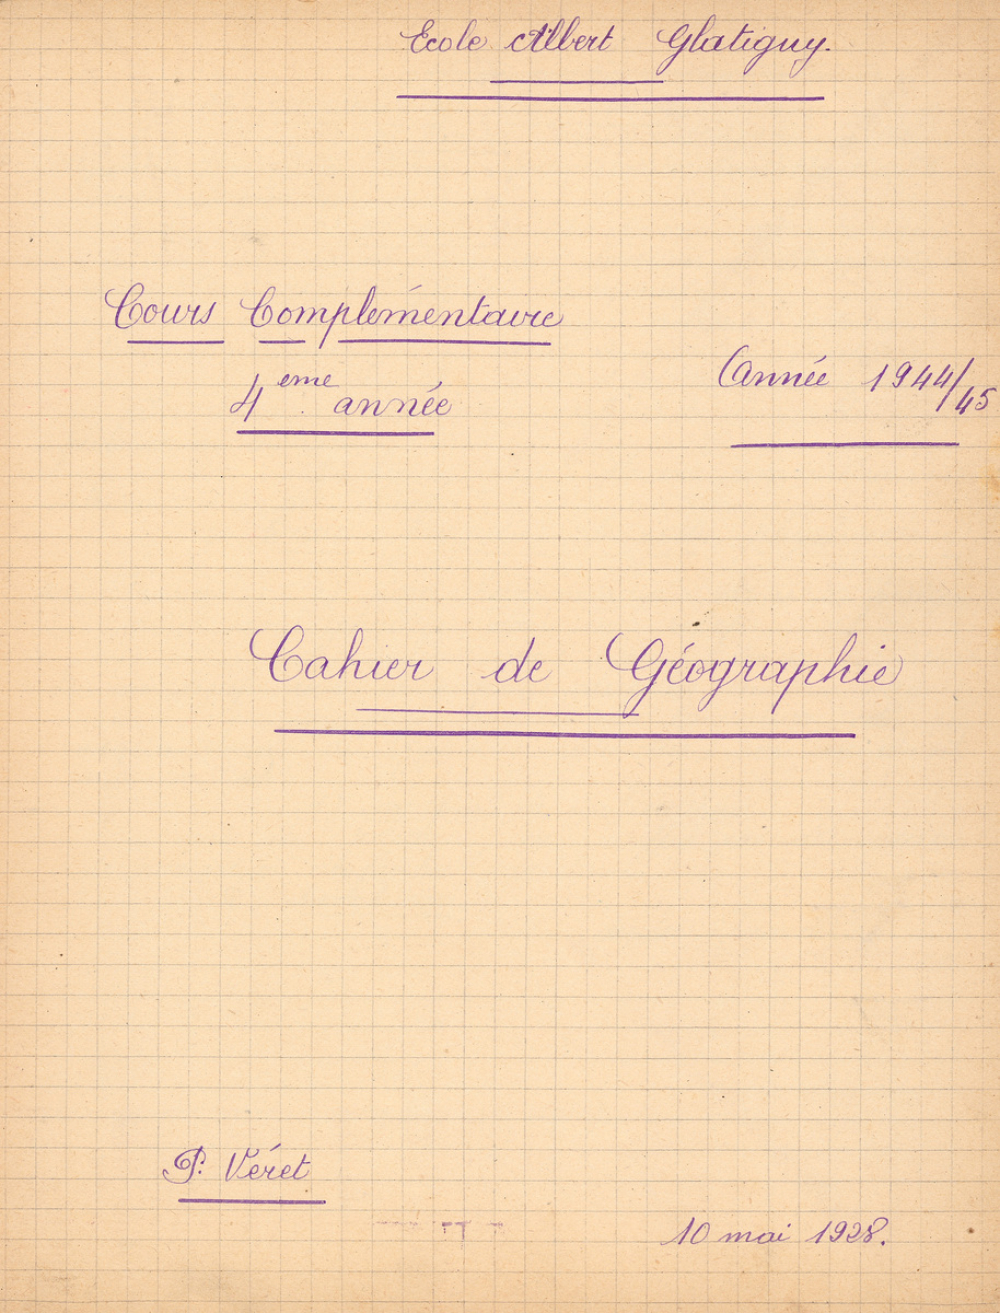 Ecole Albert Glatigny.
Cours Complémentaire
4eme année
Année 1944/45
Cahier de Géographie
P. Véret
10 mai 1928.